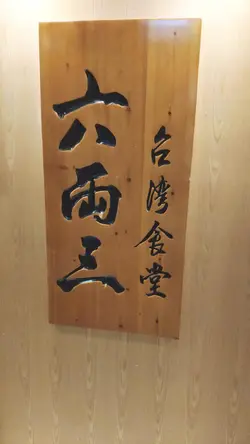 六兩三
台灣食堂